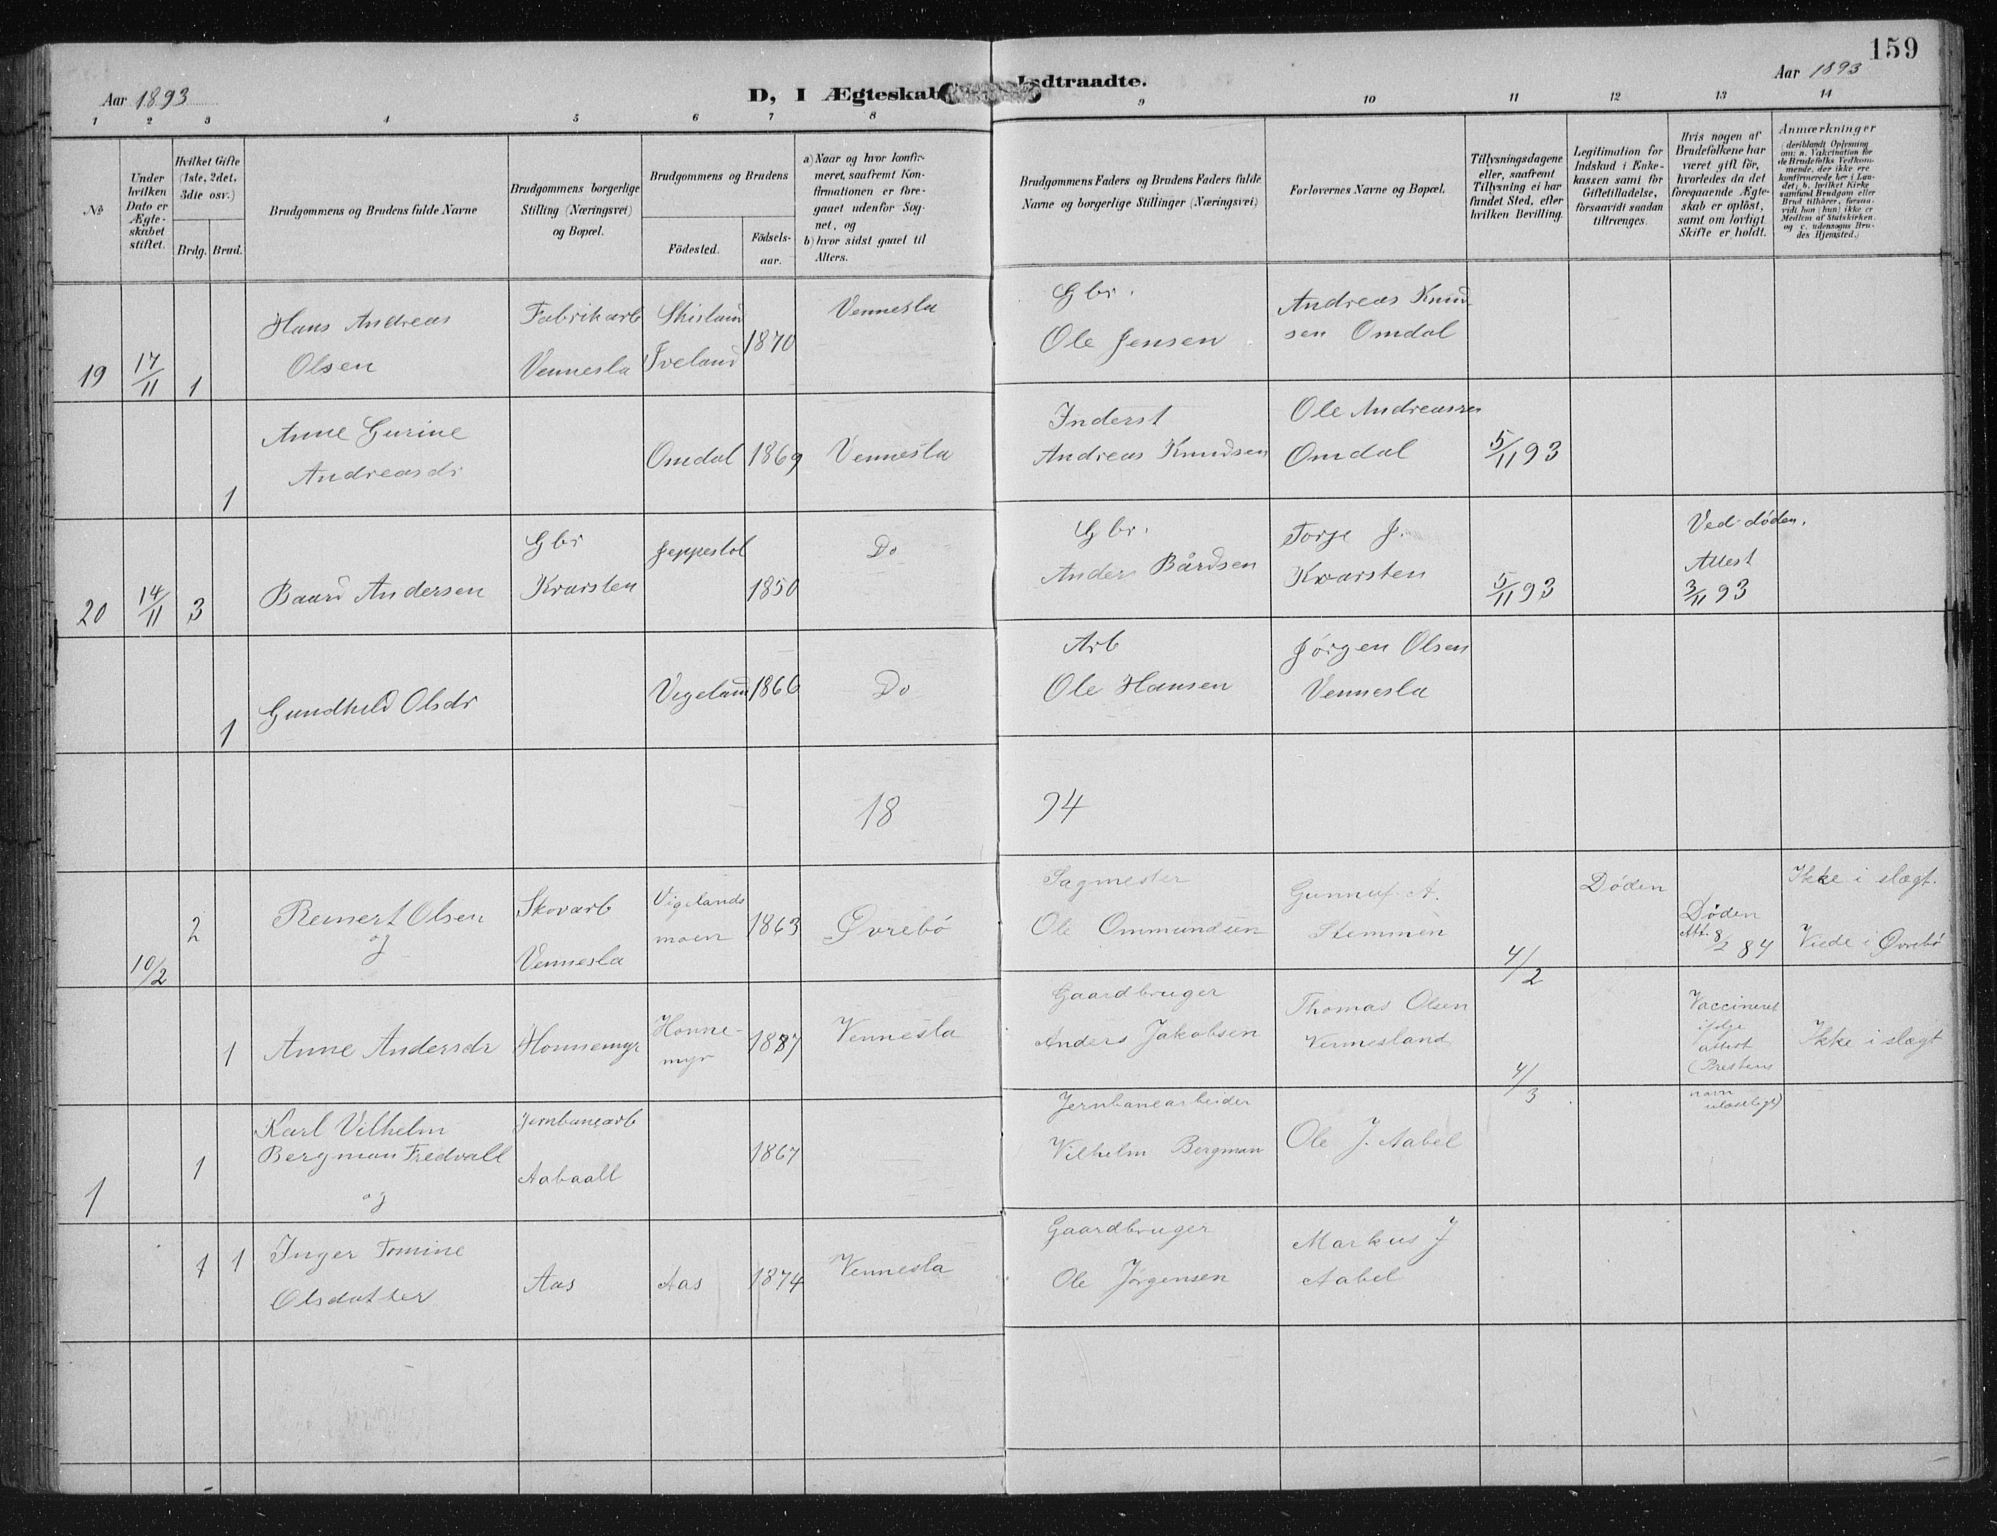 159
Aar 1893
D, I Ægteskab Indtraadte.
Aar 1893
1 2 3 4 5 6 7 8 9 10 11 12 13 14
№
Under hvilken Dato er Ægte-skabet stiftet.
Hvilket Gifte (1ste, 2det, 3die osv.)
Brdg. Brud.
Brudgommens og Brudens fulde Navne
Brudgommens borgerlige Stilling (Næringsvei) og Bopæl.
Brudgommens og Brudens
Fødested.
Fødsels-aar.
a) Naar og hvor konfir-meret, saafremt Kon-firmationen er fore-gaaet udenfor Sog-net, og
b) hvor sidst gaaet til Alters.
Brudgommens Faders og Brudens Faders fulde Navne og borgerlige Stillinger (Næringsvei)
Forlovernes Navne og Bopæl.
Tillysningsdagene eller, saafremt Tillysning ei har fundet Sted, efter hvilken Bevilling.
Legitimation for Indskud i Enke-kassen samt for Giftetilladelse, forsaavidt saadan tiltrænges.
Hvis nogen af Brudefolkene har været gift før, hvorledes da det foregaaende Ægte-skab er opløst, samt om lovligt Skifte er holdt.
Anmærkninger (deriblandt Oplysning om: a. Vakcination for de Brudefolks Vedkom-mende, der ikke ere konfirmerede her i Lan-det; b. hvilket Kirke samfund Brudgom eller Brud tilhører, forsaa-vidt han (hun) ikke er Medlem af Statskirken. og c. udensogns Bru-des Hjemsted.)
19 17/11 1
Hans Andreas Olsen
Fabrikarb Vennesla
Iveland
1870
Vennesla
Gbr. Ole Jensen
Andreas Knudsen Omdal
1
Anne Gurine Andreasdr
Omdal
1869
Vennesla
Inderst Andreas Knudsen
Ole Andreassen Omdal
5/11 93
20 14/11 3
Baard Andersen
Gbr Kvarsten
Jeppestol
1850
Do
Gbr. Anders Bårdsen
Torje J. Kvarsten
5/11 93
Ved døden. Attest 3/11 93
1
Gundhild Olsdr
Vigeland
1866
Do
Arb Ole Hansen
Jørgen Olsen Vennesla
18 94
10/2 2
Reinert Olsen og
Skovarb Vennesla
Vigelandsmoen
1863
Øvrebö
Sagmester Ole Ommundsen
Gunnuf A. Stemmen
4/2
Døden
Døden Att. 8/2 84
Ikke i slægt.
Viede i Øvrebö
1
Anne Andersdr
Honnemyr
Honnemyr
1887
Vennesla
Gaardbruger Anders Jakobsen
Thomas Olsen Vennesland
4/3
Vaccineret ifølge attest (Prestens navn ulæseligt)
Ikke i slægt
1 1
Karl Vilhelm Bergman Fredvall og
Jernbanearb Aabaall
1867
Jernbanearbeider Vilhelm Bergman
Ole J. Aabel
1 1
Inger Tomine Olsdatter
Aas
Aas
1874
Vennesla
Gaardbruger Ole Jørgensen
Markus J Aabel